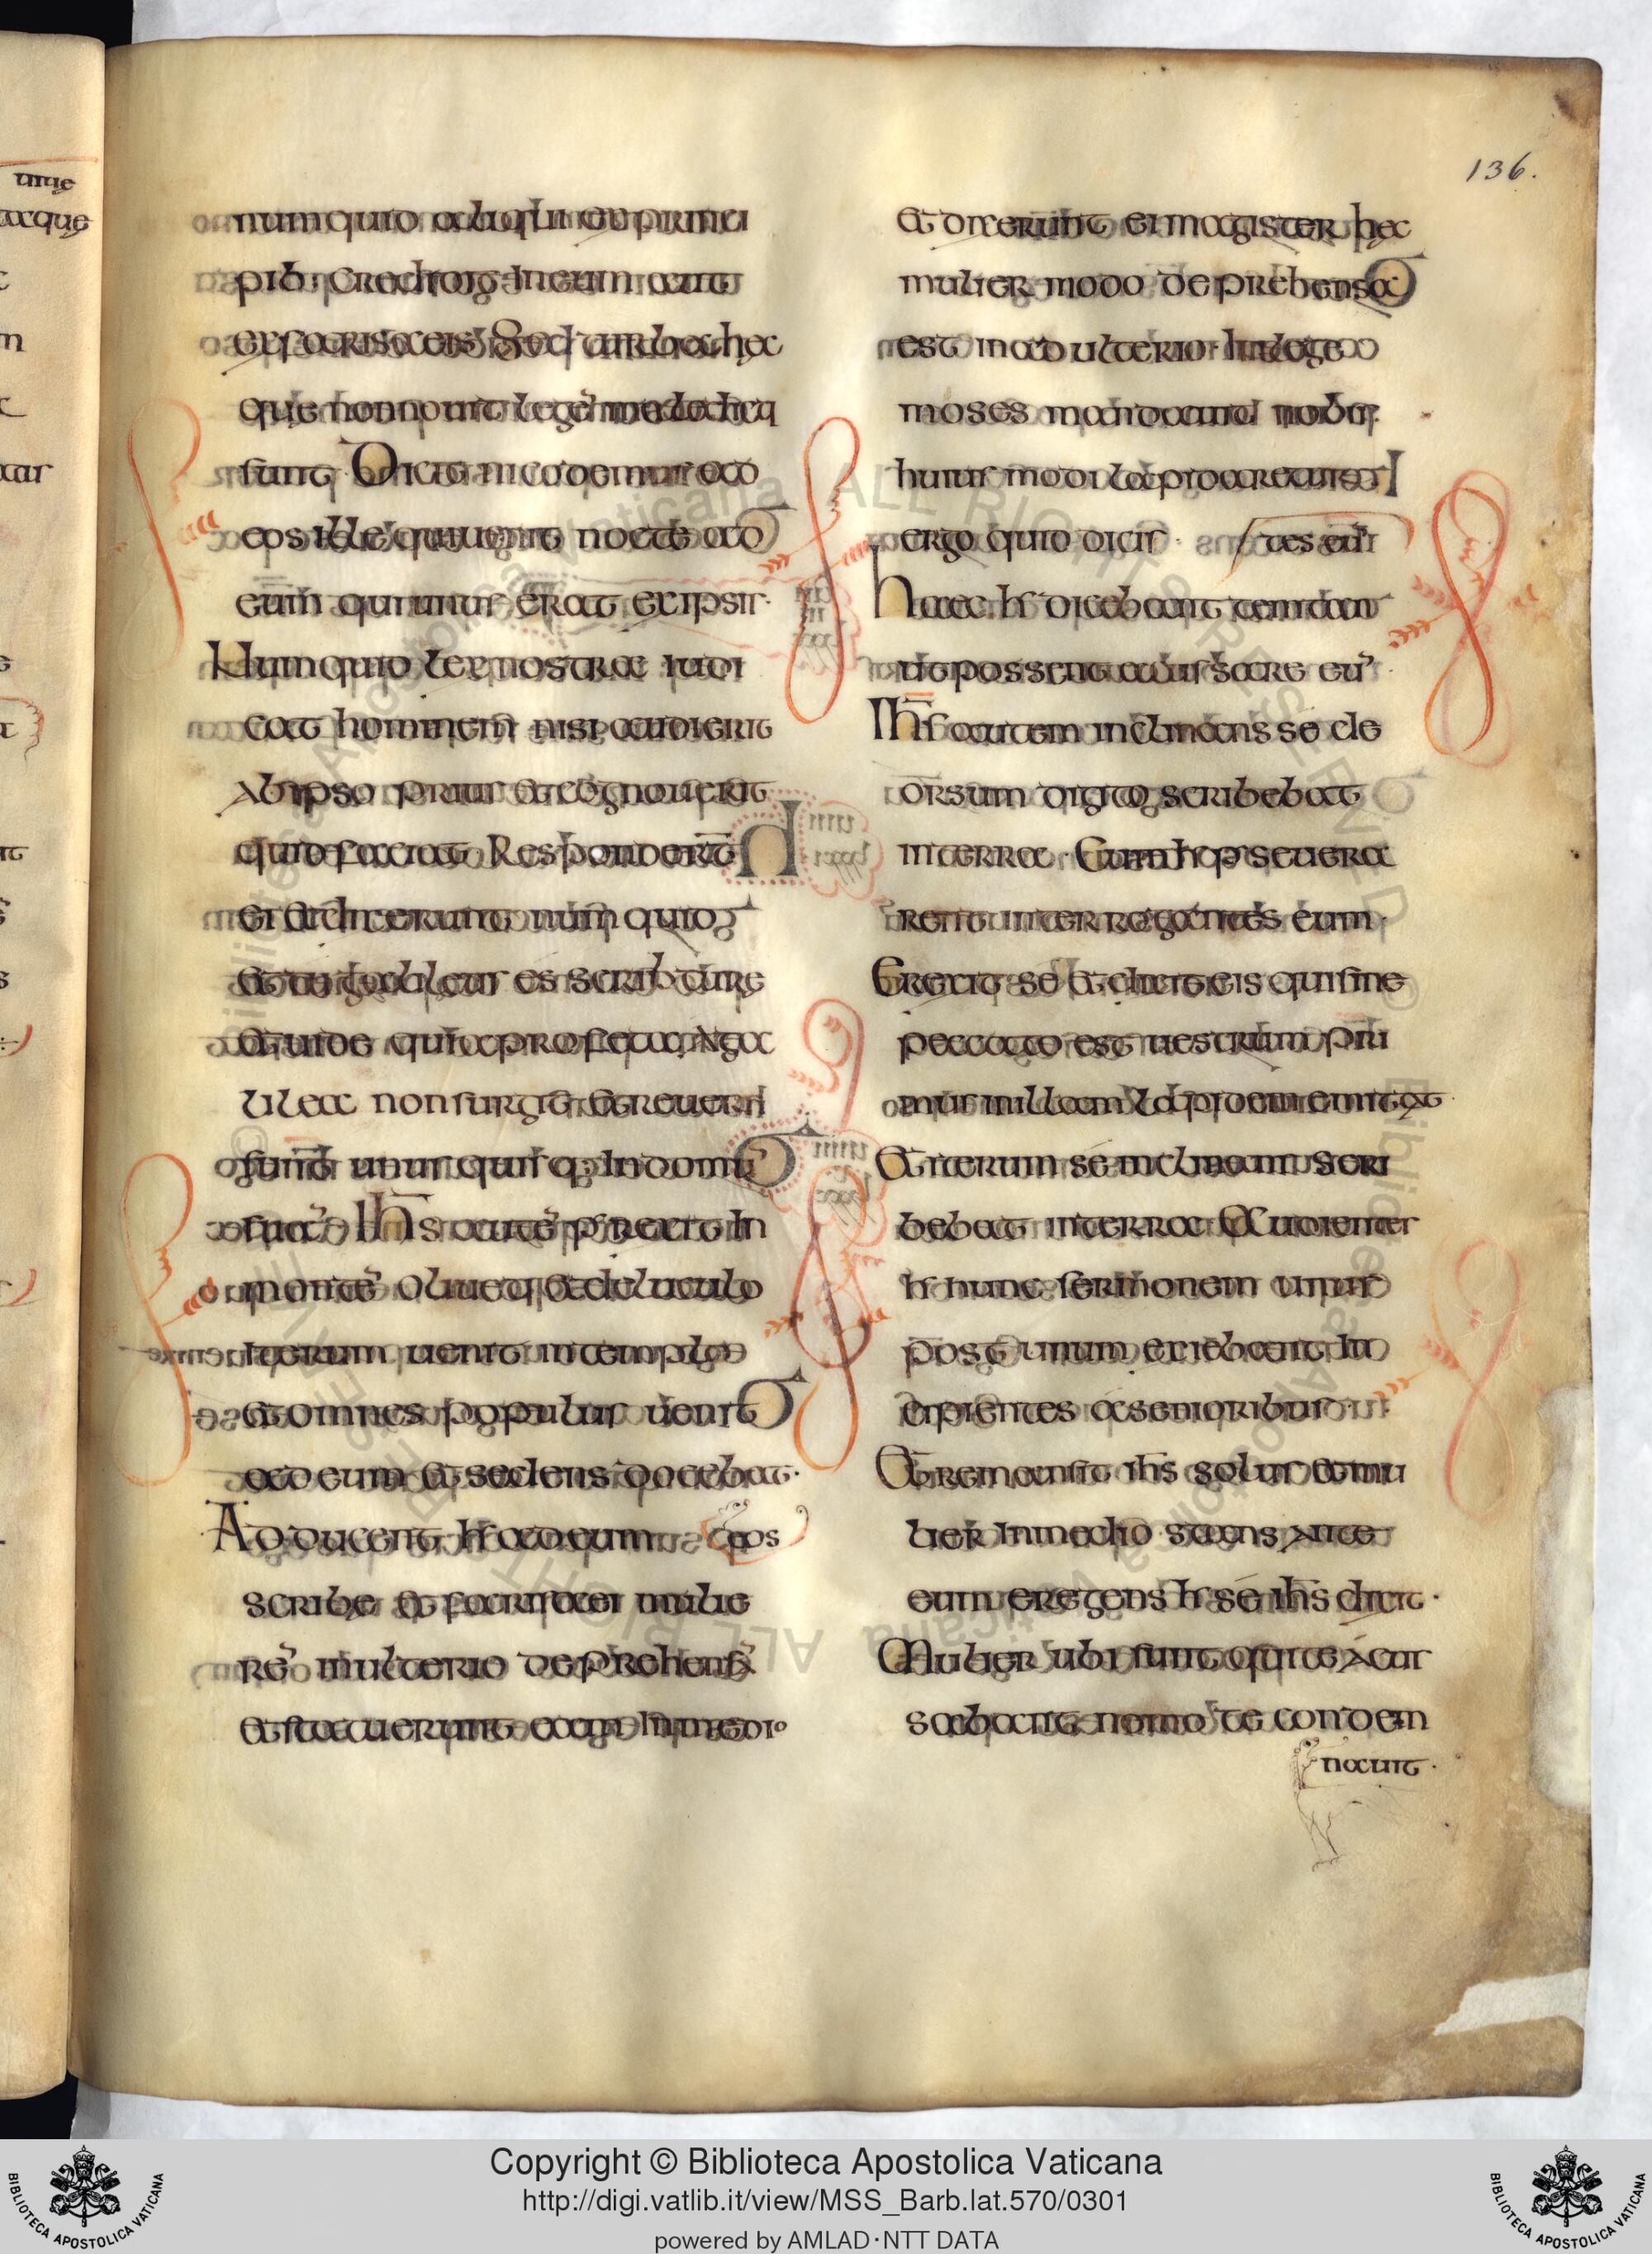 136.
numquid aliqui ex princi
pib; credidit in eum aut
ex farisaeis Sed turba hec
que non nouit legē maledicti
sunt Dicit nicodemus ad
eos ille qui uenit nocte ad
eum qui unus erat ex ipsis·
Numquid lex nostra iudi
cat hominem nisi audierit
ab ipso prius et cognouerit
quid faciat Responderunt
ei et dixerunt numquid
et tu galileus es scribture
et uide quia profeta a ga
lilea non surgit Et reuersi
sunt unus quisq; in domū
suā Ihs autē perrexit in
montē oliueti et deluculo
iterum uenit in templo
et omnes populus uenit
ad eum et sedens docebat·
Adducent hr̄ ad eum eos
scribe et farisaei mulie
rē in ulterio deprehensā
et statuerunt eam in medio
et dixerunt ei magister hec
mulier modo deprehensa
est in adulterio In lege
moses mandauit nobis
huius modi lapidare tu
ergo quid dicis· tes eū
haec hr̄ dicebant temtan
ut possent accussare eū·
Ihs autem inclinans se de
orsum digito scribebat
in terra Cum hr̄ perseuera
rent interrogantes eum·
Erexit se et dixit eis qui sine
peccato est uestrum pri
mus in illam lapidem mittat
Et iterum se inclinans scri
bebat in terra Audientes
hr̄ hunc sermonem unus
post unum exiebant in
cipientes a senioribus·
Et remansit ihs solus et mu
lier in medio stans Ante
eum eregens hr̄ se ihs dixit·
Mulier ubi sunt qui te accu
sabant nemo te condem
nauit·
Copyright © Biblioteca Apostolica Vaticana
http://digi.vatlib.it/view/MSS_Barb.lat.570/0301
powered by AMLAD·NTT DATA
BIBLIOTECA APOSTOLICA VATICANA
BIBLIOTECA APOSTOLICA VATICANA